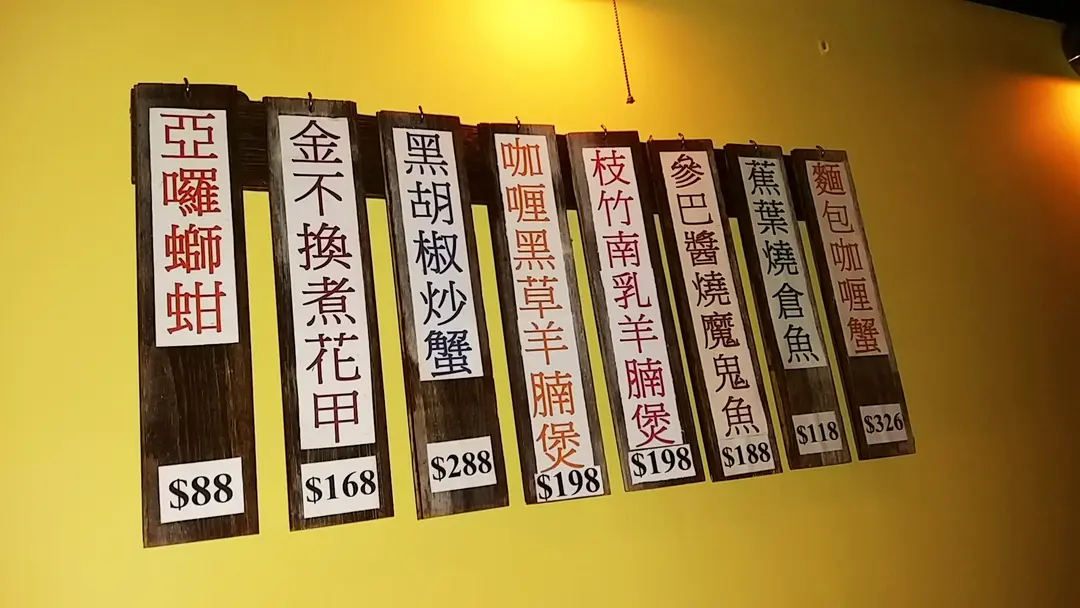 亞囉螄蚶
$88
金不換煮花甲
$168
黑胡椒炒蟹
$288
咖喱黑草羊腩煲
$198
枝竹南乳羊腩煲
$198
參巴醬燒魔鬼魚
$188
蕉葉燒倉魚
$118
麵包咖喱蟹
$326